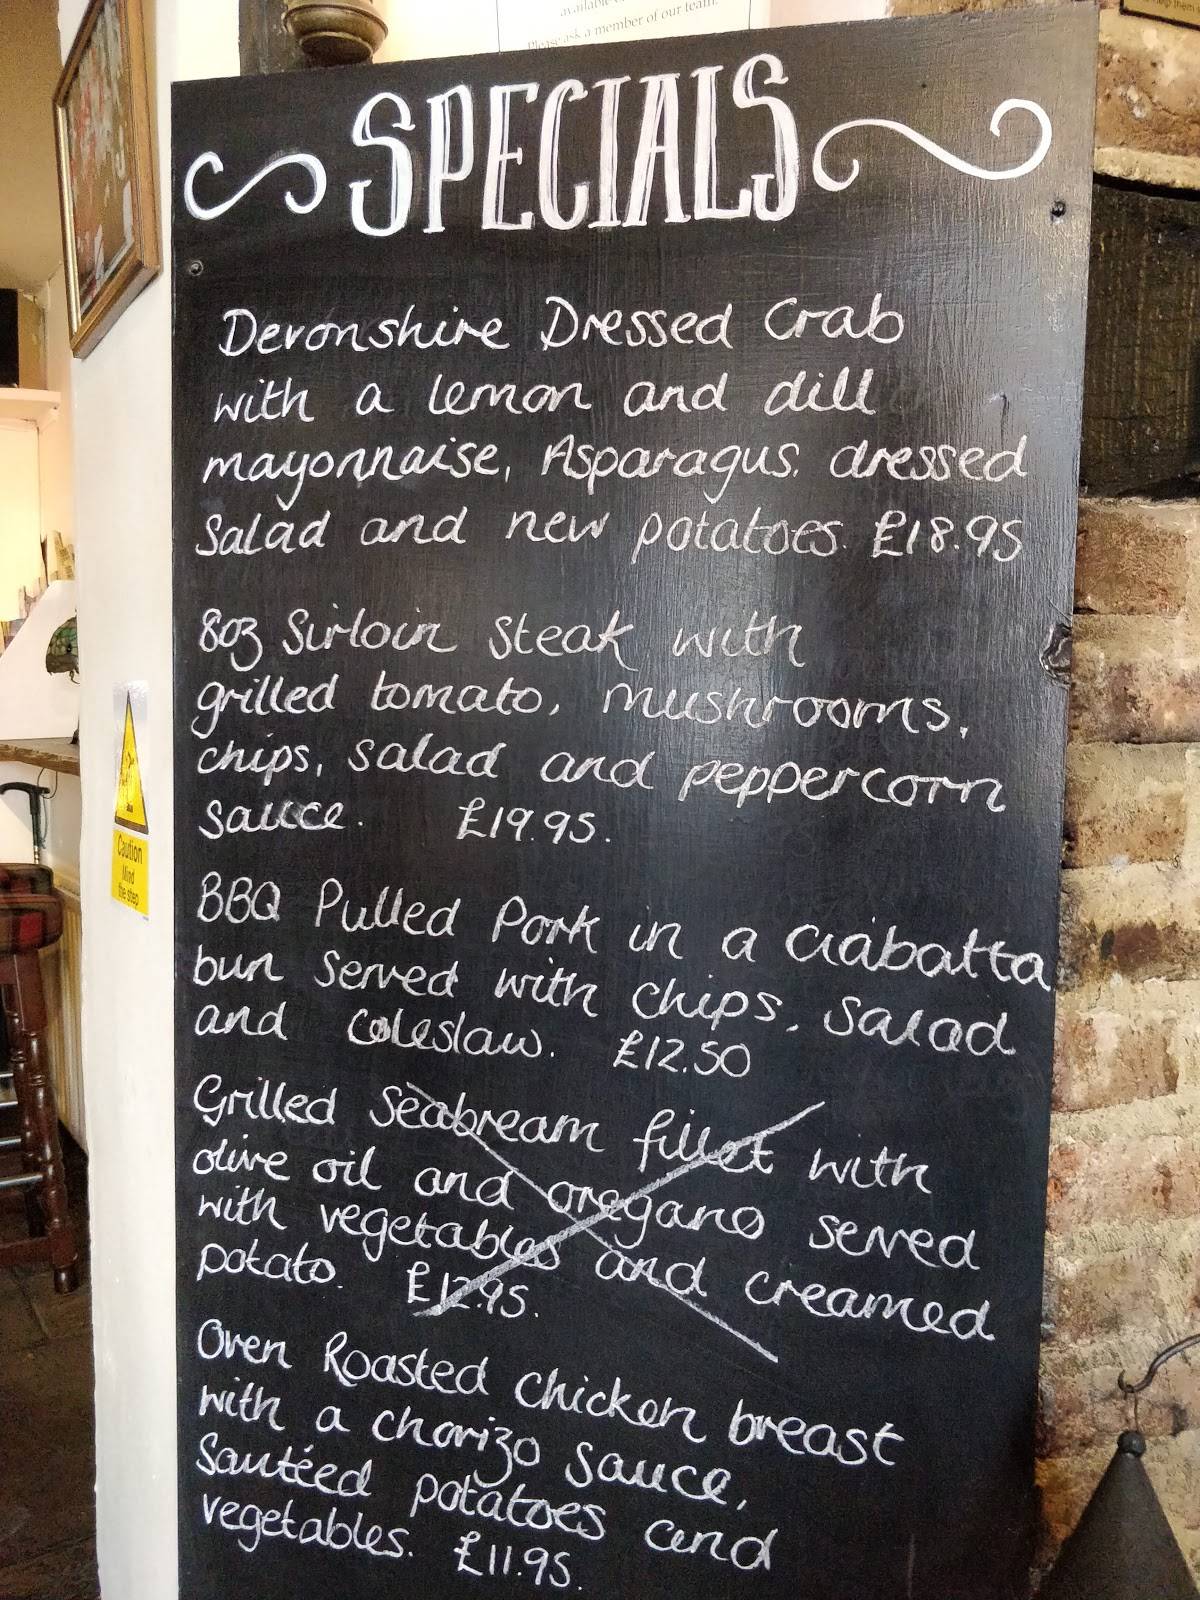 Please ask a member of our team.
SPECIALS
Devonshire Dressed Crab
with a lemon and dill
mayonnaise, Asparagus, dressed
Salad and new potatoes. £18.95
8oz Sirloin Steak with
grilled tomato, mushrooms,
chips, salad and peppercorn
sauce. £19.95.
BBQ Pulled Pork in a ciabatta
bun served with chips, salad
and coleslaw. £12.50
Grilled Seabream fillet with
olive oil and oregano served
with vegetables and creamed
potato. £12.95.
Oven Roasted chicken breast
with a chorizo sauce,
Sautéed potatoes and
vegetables. £11.95.
Caution
Mind
the step